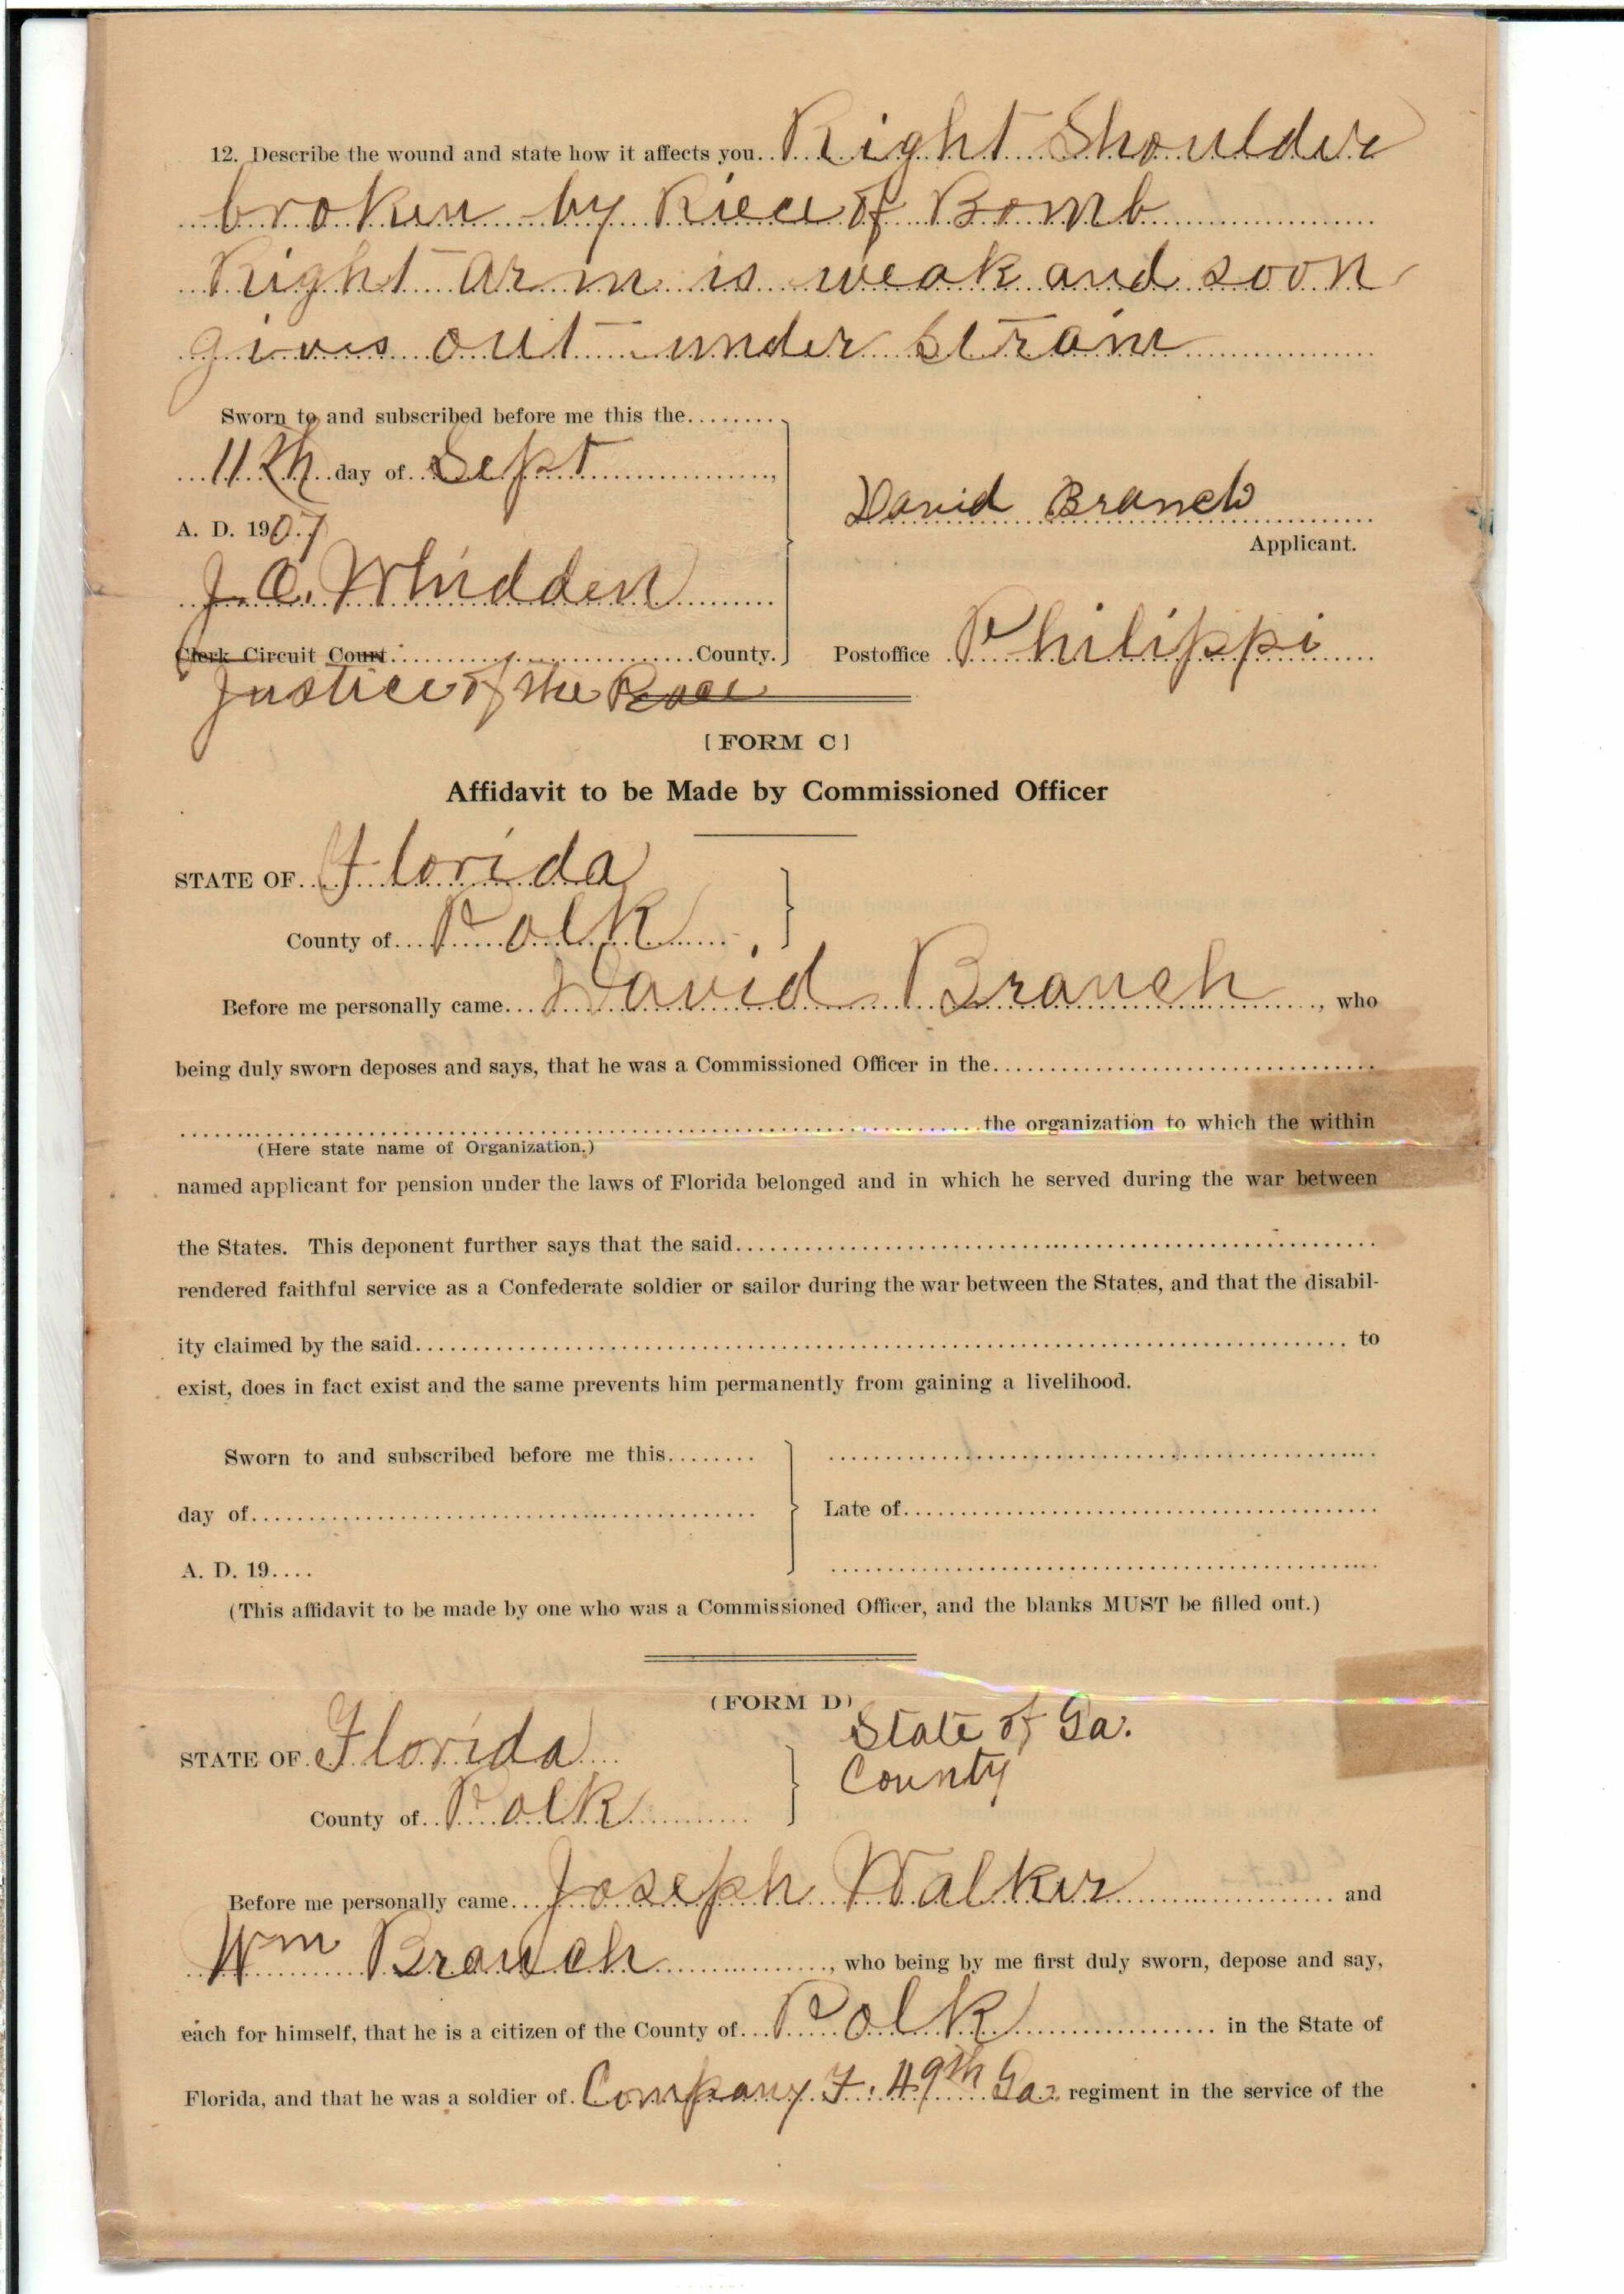 12. Describe the wound and state how it affects you. Right Shoulder
broken by Piece of Bomb
Right arm is weak and soon
gives out under strain
Sworn to and subscribed before me this the
11th day of Sept,
A. D. 1907
J. O. Whidden
Clerk Circuit Court County.
Justice of the Peace
David Branch
Applicant.
Postoffice Philippi
[FORM C]
Affidavit to be Made by Commissioned Officer
STATE OF Florida
County of Polk,
Before me personally came David Branch, who
being duly sworn deposes and says, that he was a Commissioned Officer in the
the organization to which the within
(Here state name of Organization.)
named applicant for pension under the laws of Florida belonged and in which he served during the war between
the States. This deponent further says that the said
rendered faithful service as a Confederate soldier or sailor during the war between the States, and that the disabil-
ity claimed by the said to
exist, does in fact exist and the same prevents him permanently from gaining a livelihood.
Sworn to and subscribed before me this
day of
A. D. 19....
Late of
(This affidavit to be made by one who was a Commissioned Officer, and the blanks MUST be filled out.)
(FORM D)
STATE OF Florida
County of Polk
State of Ga.
County
Before me personally came Joseph Walker and
Wm Branch, who being by me first duly sworn, depose and say,
each for himself, that he is a citizen of the County of Polk in the State of
Florida, and that he was a soldier of Company F. 49th Ga. regiment in the service of the